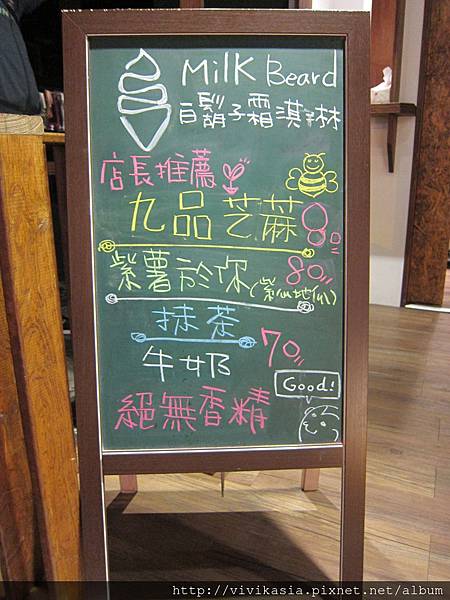 Milk Beard
白鬍子霜淇淋
店長推薦
九品芝蔴 80
紫薯於你(紫心地仙) 80
抹茶
牛奶 70
Good!
絕無香精
http://vivikasia.pixnet.net/album